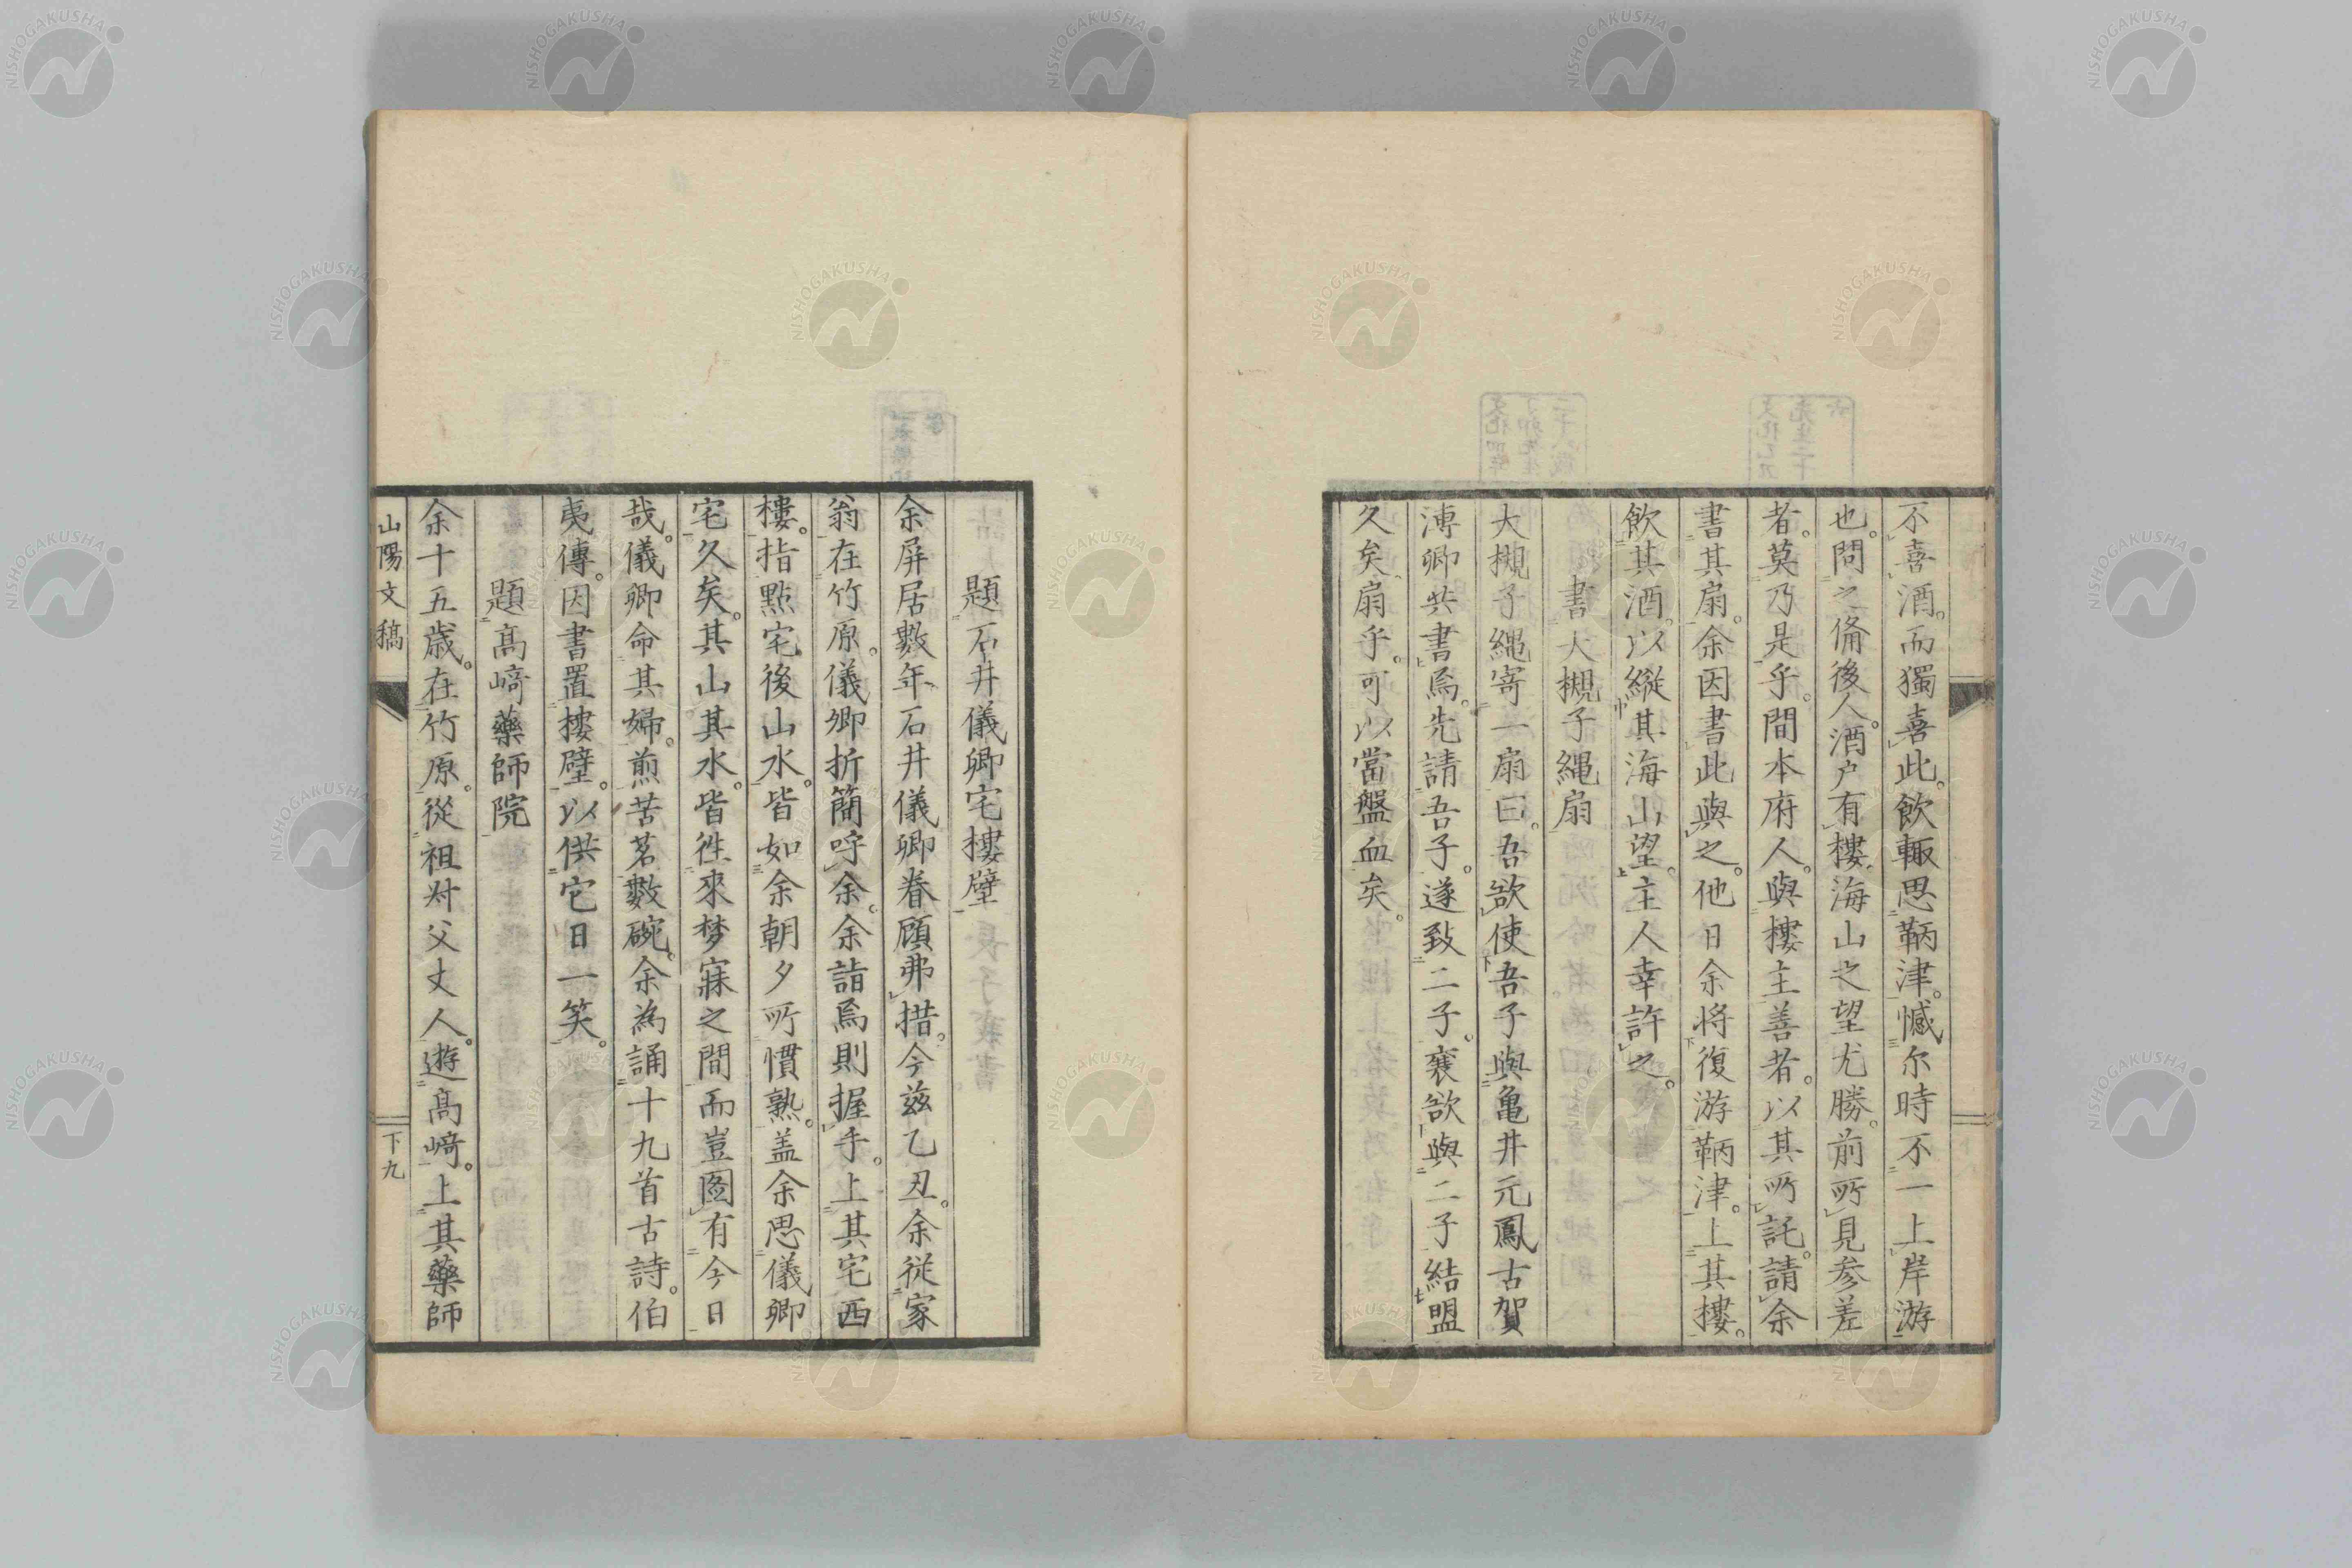 不喜酒。而獨喜此。飲輙思鞆津。憾尓時不一上岸游
也。問之俻後人。酒户有樓海山之望尤勝。前所見参差
者。莫乃是乎。間本府人。與樓主善者。以其所託。請余
書其扇。余因書此與之。他日余将復游鞆津。上其樓。
飲其酒。以縦其海山望。主人幸許之。
書大槻子縄扇
大槻子縄寄一扇曰。吾欲使吾子與亀井元鳳古賀
溥卿共書焉。先請吾子。遂致二子。襄欲與二子結盟
久矣。扇乎。可以當盤血矣。
題石井儀卿宅樓壁
余屏居數年石井儀卿眷顧弗措。今兹乙丑。余従家
翁在竹原。儀卿折簡呼余。余詣焉則握手。上其宅西
樓。指點宅後山水。皆如余朝夕所慣熟。盖余思儀卿
宅久矣。其山其水。皆徃來梦寐之間而豈圖有今日
哉。儀卿命其婦。煎苦茗數碗。余為誦十九首古詩。伯
夷傳。因書置樓壁。以供它日一笑。
題髙﨑藥師院
余十五歳。在竹原。從祖叔父丈人。遊髙﨑。上其藥師
山陽文稿
下九
NISHOGAKUSHA